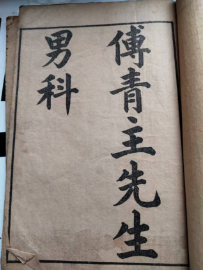 傅青主先生
男科